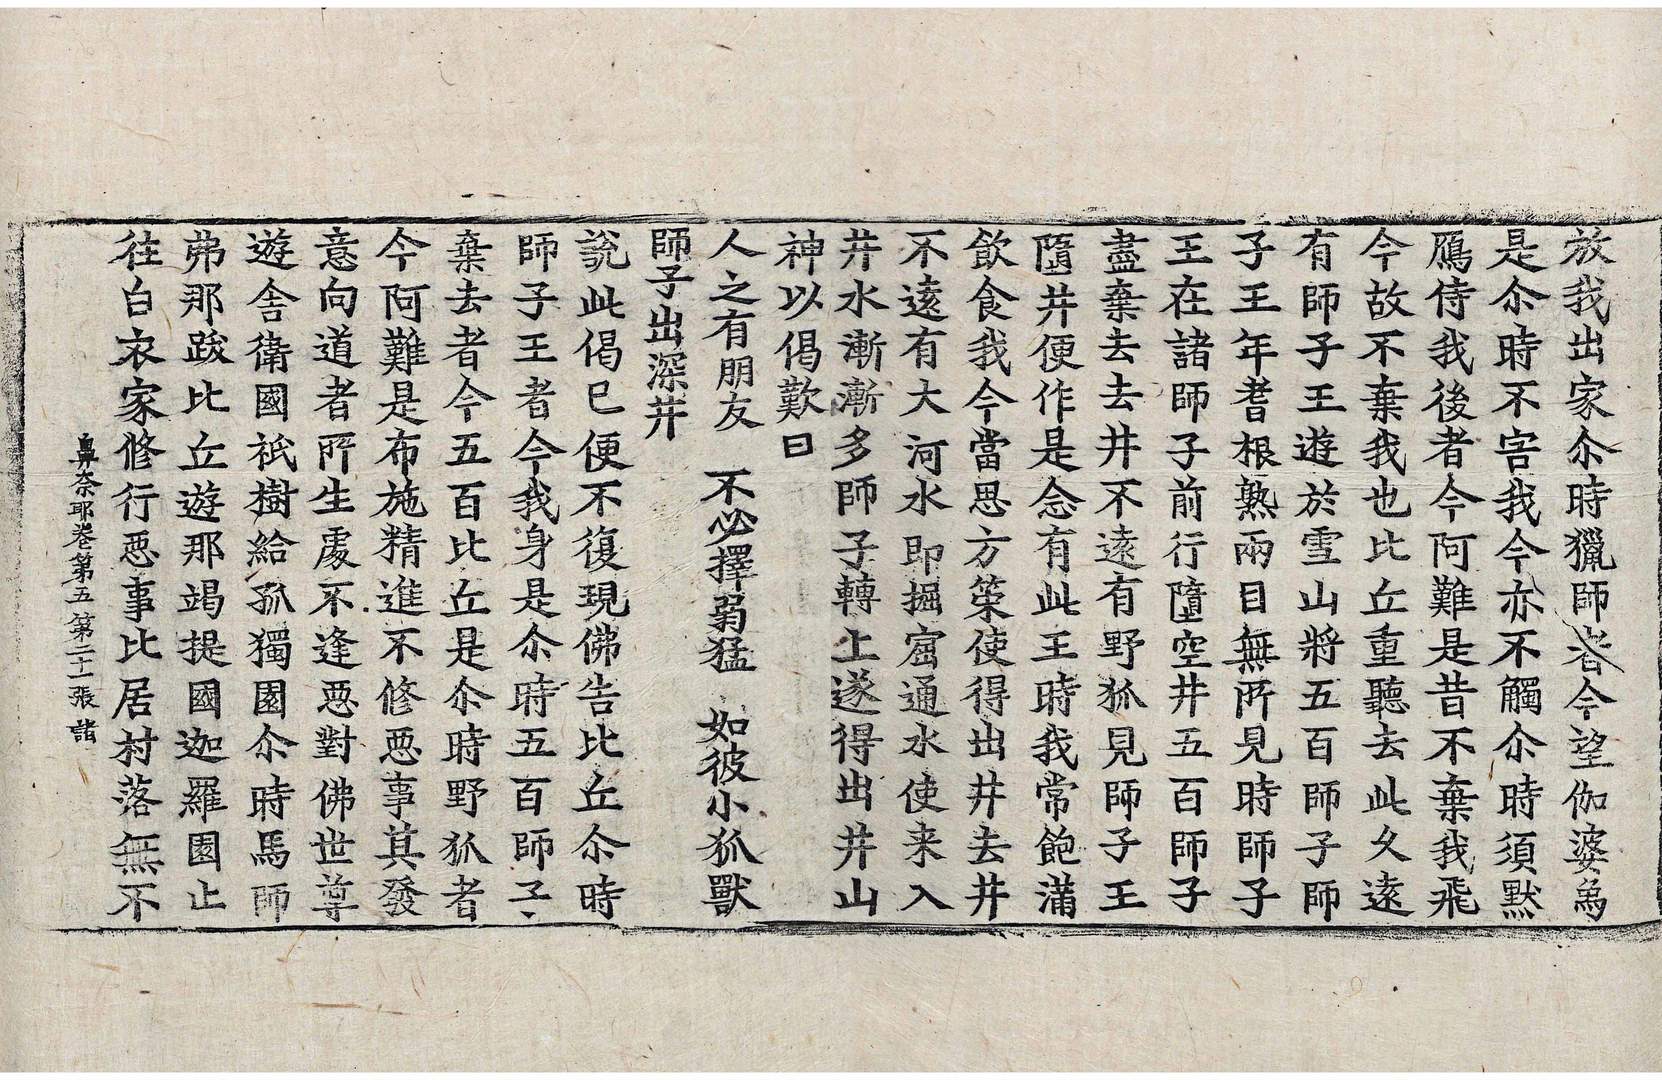 放我出家尒時獵師者今望伽婆為
是尒時不害我今亦不觸尒時須默
鴈侍我後者今阿難是昔不棄我飛
今故不棄我也比丘重聽去此久遠
有師子王遊於雪山將五百師子師
子王年耆根熟兩目無所見時師子
王在諸師子前行墮空井五百師子
盡棄去去井不遠有野狐見師子王
墮井便作是念有此王時我常飽滿
飲食我今當思方策使得出井去井
不遠有大河水即掘窟通水使来入
井水漸漸多師子轉上遂得出井山
神以偈歎曰
人之有朋友　不必擇弱猛　如彼小狐獸
師子出深井
說此偈已便不復現佛告比丘尒時
師子王者今我身是尒時五百師子
棄去者今五百比丘是尒時野狐者
今阿難是布施精進不修惡事其發
意向道者所生處不逢惡對佛世尊
遊舍衛國祇樹給孤獨園尒時馬師
弗那跋比丘遊那竭提國迦羅園止
往白衣家修行惡事比居村落無不
鼻奈耶卷第五　第二十一張　諸